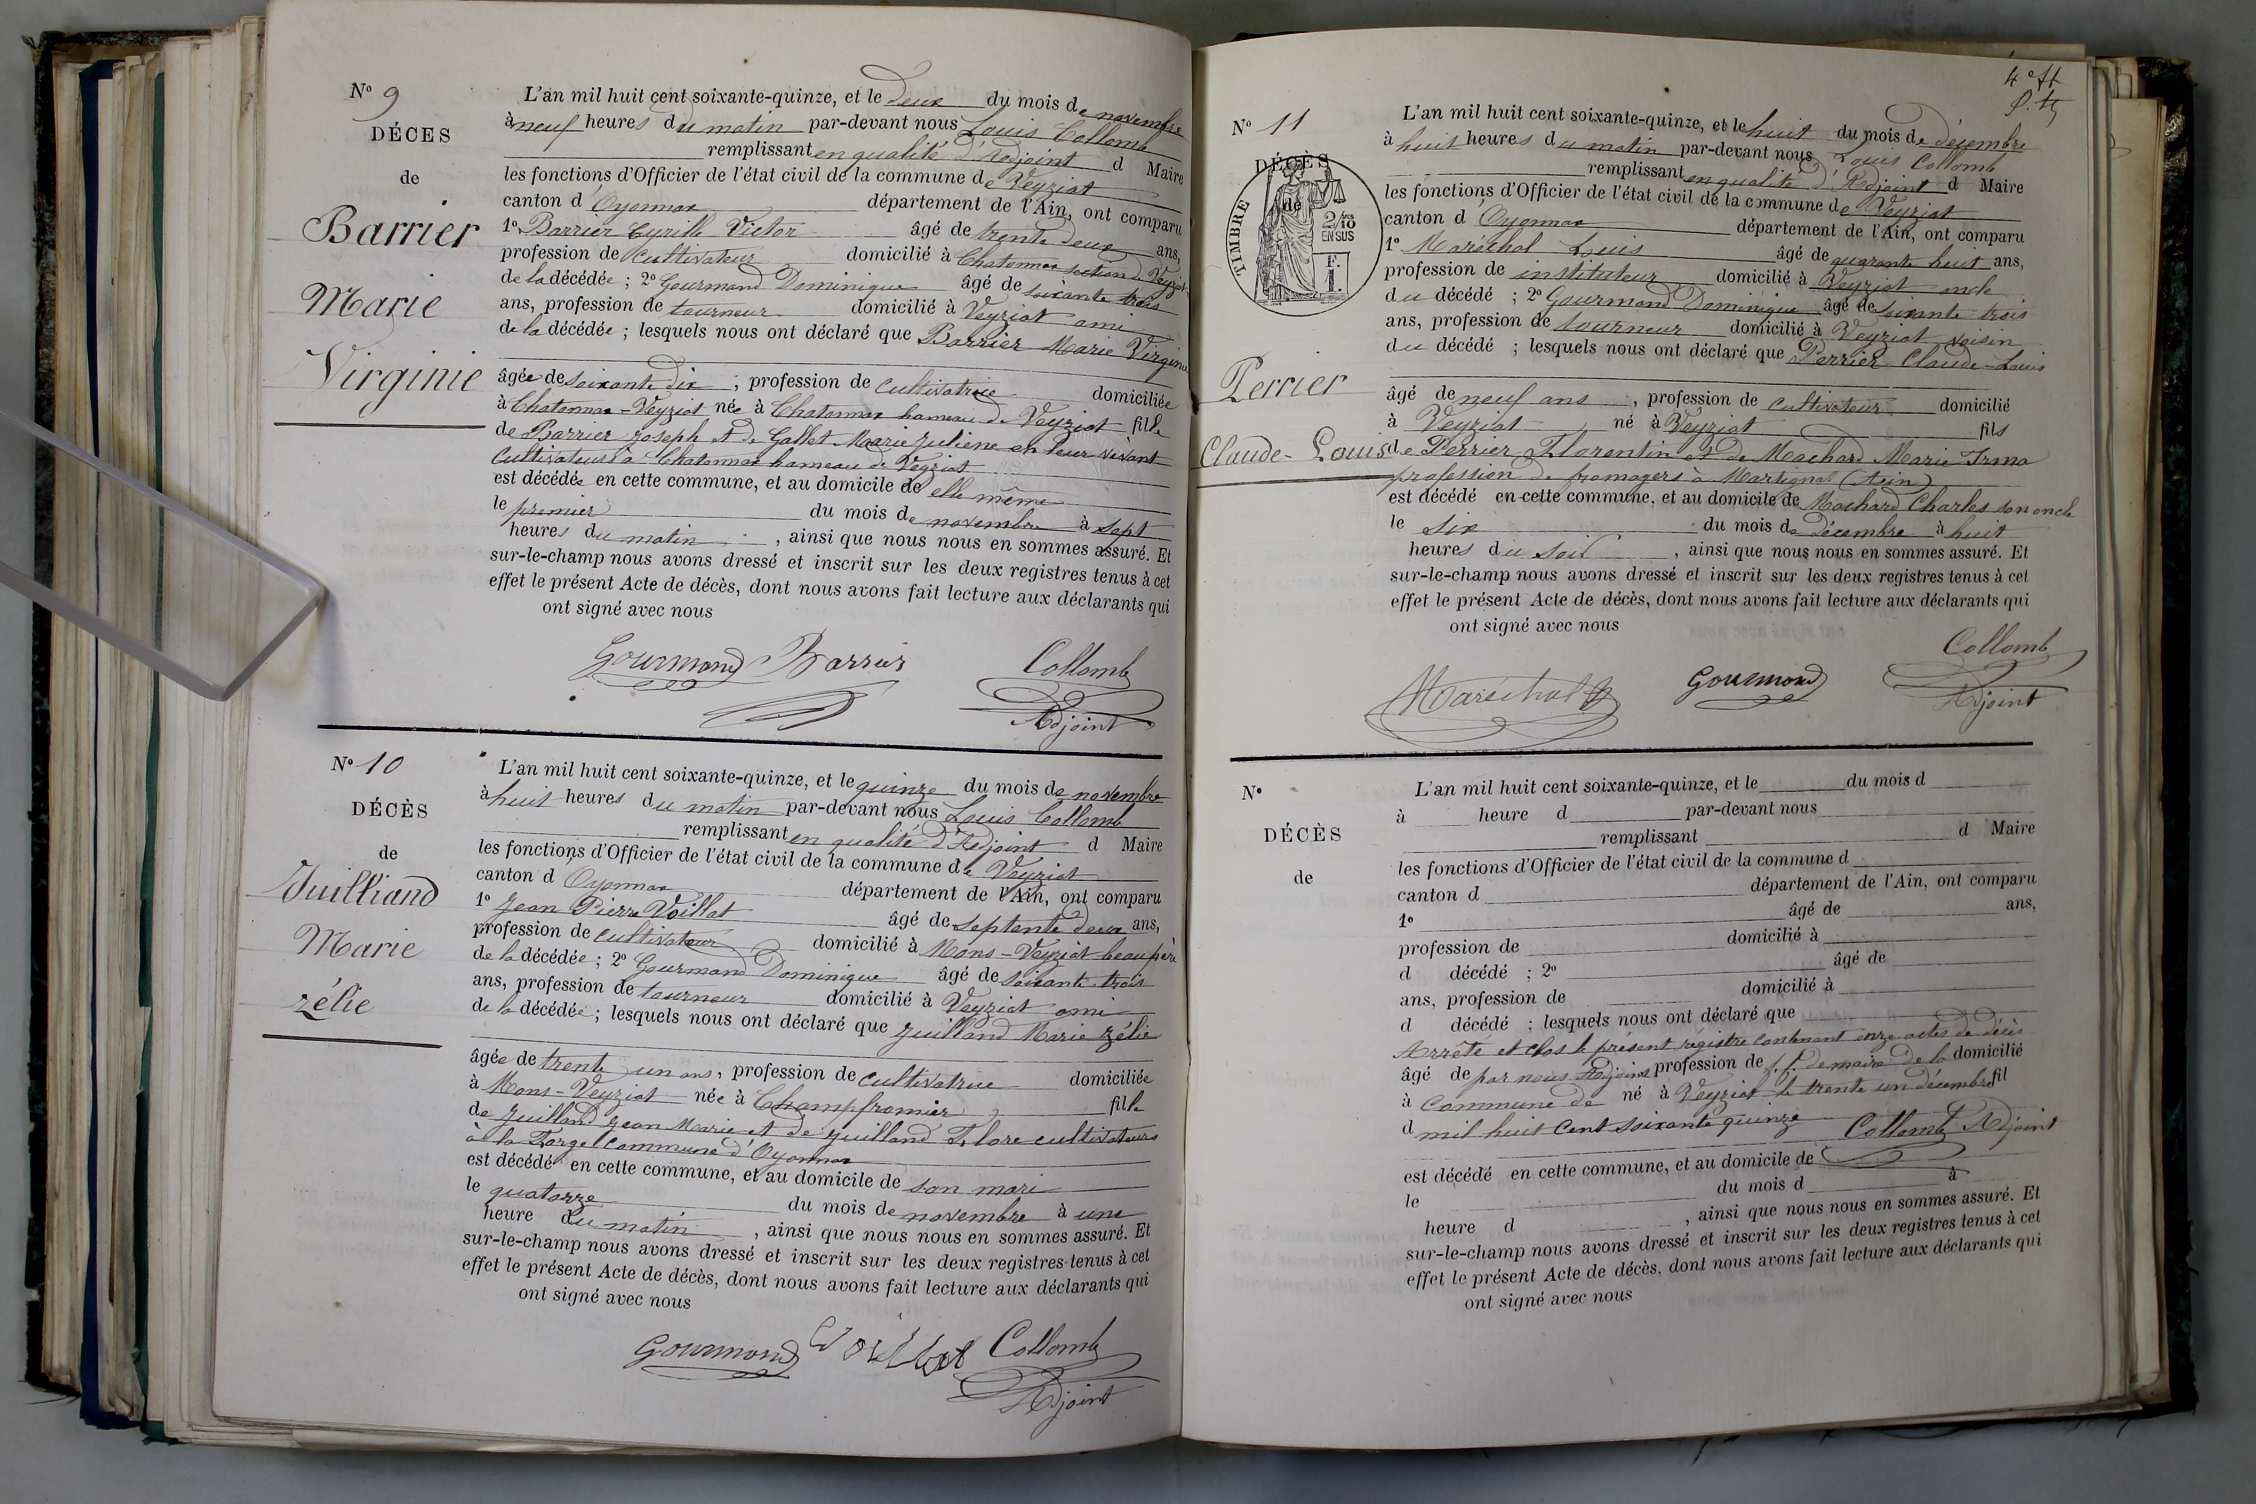 Nº 9
DÉCES
de
Barrier
Marie
Virginie
L'an mil huit cent soixante-quinze, et le deux du mois de novembre
à neuf heures du matin par-devant nous Louis Collomb
remplissant en qualité d'Adjoint d Maire
les fonctions d'Officier de l'état civil de la commune de Veyziat
canton d'Oyonnax département de l'Ain, ont comparu
1º Barrier Cyrille Victor âgé de trente deux ans,
profession de cultivateur domicilié à Chatonnax section de Veyziat
de la décédée ; 2º Gourmand Dominique âgé de soixante trois
ans, profession de tourneur domicilié à Veyziat ami
de la décédée ; lesquels nous ont déclaré que Barrier Marie Virginie
âgée de soixante dix ; profession de cultivatrice domiciliée
à Chatonnax-Veyziat née à Chatonnax hameau de Veyziat fille
de Barrier Joseph et de Gallet Marie Juliene en leur vivant
cultivateurs à Chatonnax hameau de Veyziat
est décédée en cette commune, et au domicile de elle même
le premier du mois de novembre à sept
heures du matin , ainsi que nous nous en sommes assuré. Et
sur-le-champ nous avons dressé et inscrit sur les deux registres tenus à cet
effet le présent Acte de décès, dont nous avons fait lecture aux déclarants qui
ont signé avec nous
Gourmand Barrier Collomb
Adjoint
Nº 10
DÉCÈS
de
Juilliand
Marie
zélie
L'an mil huit cent soixante-quinze, et le quinze du mois de novembre
à huit heures du matin par-devant nous Louis Collomb
remplissant en qualité d'Adjoint d Maire
les fonctions d'Officier de l'état civil de la commune de Veyziat
canton d Oyonnax département de l'Ain, ont comparu
1º Jean Pierre Voillat âgé de septente deux ans,
profession de cultivateur domicilié à Mons-Veyziat beaupère
de la décédée ; 2º Gourmand Dominique âgé de soixante trois
ans, profession de tourneur domicilié à Veyziat ami
de la décédée ; lesquels nous ont déclaré que Juilland Marie Zélie
âgée de trente un ans, profession de cultivatrice domiciliée
à Mons-Veyziat née à Champfromier fille
de Juilland Jean Marie et de Juilland Flore cultivateurs
à la Forge commune d'Oyonnax
est décédé en cette commune, et au domicile de son mari
le quatorze du mois de novembre à une
heure du matin , ainsi que nous nous en sommes assuré. Et
sur-le-champ nous avons dressé et inscrit sur les deux registres tenus à cet
effet le présent Acte de décès, dont nous avons fait lecture aux déclarants qui
ont signé avec nous
Gourmand Voillat Collomb
Adjoint
4e ft
Nº 11
DÉCÈS
de
TIMBRE
2/10
EN SUS
F.
1.
Perrier
Claude-Louis
L'an mil huit cent soixante-quinze, et le huit du mois de décembre
à huit heures du matin par-devant nous Louis Collomb
remplissant en qualité d'Adjoint d Maire
les fonctions d'Officier de l'état civil de la commune de Veyziat
canton d'Oyonnax département de l'Ain, ont comparu
1º Maréchal Louis âgé de quarante huit ans,
profession de instituteur domicilié à Veyziat oncle
du décédé ; 2º Gourmand Dominique âgé de soixante trois
ans, profession de tourneur domicilié à Veyziat voisin
du décédé ; lesquels nous ont déclaré que Perrier Claude-Louis
âgé de neuf ans , profession de cultivateur domicilié
à Veyziat né à Veyziat fils
de Perrier Florentin et de Machard Marie Irma
profession de fromagers à Martignat (Ain)
est décédé en cette commune, et au domicile de Machard Charles son oncle
le six du mois de Décembre à huit
heures du soir , ainsi que nous nous en sommes assuré. Et
sur-le-champ nous avons dressé et inscrit sur les deux registres tenus à cet
effet le présent Acte de décès, dont nous avons fait lecture aux déclarants qui
ont signé avec nous
Collomb
Maréchal Gourmand Adjoint
Nº
DÉCÈS
de
L'an mil huit cent soixante-quinze, et le du mois d
à heure d par-devant nous
remplissant d Maire
les fonctions d'Officier de l'état civil de la commune d
canton d département de l'Ain, ont comparu
1º âgé de ans,
profession de domicilié à
d décédé ; 2º âgé de
ans, profession de domicilié à
d décédé ; lesquels nous ont déclaré que
Arrêté et clos le présent régistre contenant onze actes de décès
âgé de par nous Adjoint profession de f. f. de maire de la domicilié
à commune de né à Veyziat le trente un décembre fil
d mil huit cent soixante quinze Collomb Adjoint
est décédé en cette commune, et au domicile de
le du mois d à
heure d , ainsi que nous nous en sommes assuré. Et
sur-le-champ nous avons dressé et inscrit sur les deux registres tenus à cet
effet le présent Acte de décès, dont nous avons fait lecture aux déclarants qui
ont signé avec nous